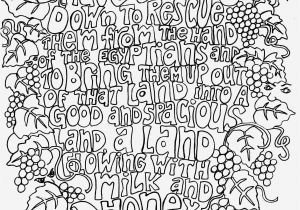 DOWN TO RESCUE
THEM FROM THE HAND
OF THE EGYPTIANS AND
TO BRING THEM UP OUT
OF THAT LAND INTO A
GOOD AND SPACIOUS
LAND A LAND
FLOWING WITH
MILK AND
HONEY